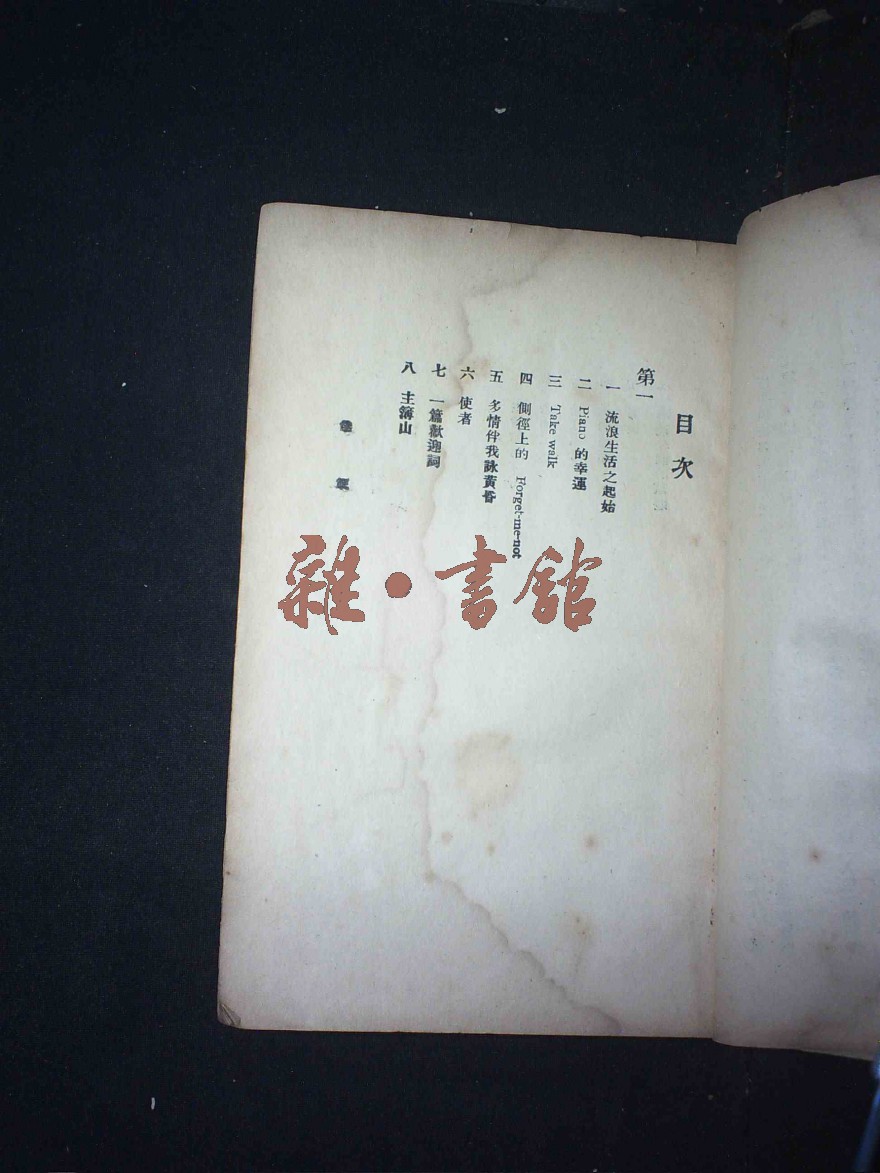 目次
第一
一 流浪生活之起始
二 Piano 的幸運
三 Take walk
四 側徑上的 Forget-me-not
五 多情伴我詠黃昏
六 使者
七 一篇歡迎詞
八 主簿山
雜·書館